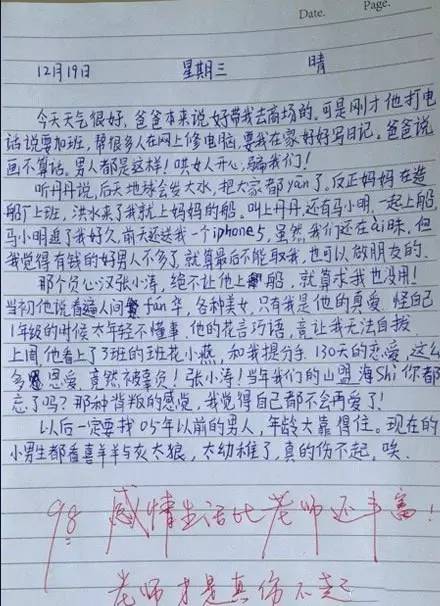 Date.
Page.
12月19日 星期三 晴
今天天气很好,爸爸本来说好带我去商场的。可是刚才他打电
话说要加班,帮很多人在网上修电脑,要我在家好好写日记。爸爸说
画不算话。男人都是这样!哄女人开心,骗我们!
听丹丹说,后天地球会发大水,把大家都yān了。反正妈妈在造
船厂上班,洪水来了我就上妈妈的船。叫上丹丹,还有马小明,一起上船,
马小明追了我好久,前天还送我一个iphone5,虽然我们还在ai昧,但
我觉得有钱的好男人不多了,就算最后不能取我,也可以做朋友的。
那个负心汉张小涛,绝不让他上船,就算求我也没用!
当初他说看遍人间fán华,各种美女,只有我是他的真爱。怪自己
1年级的时候太年轻不懂事。他的花言巧语,竟让我无法自拔
上周他看上了3班的班花小燕,和我提分手。130天的恋爱,这么
多恩爱,竟然被辜负!张小涛!当年我们的山盟海Shi你都
忘了吗?那种背叛的感觉,我觉得自己都不会再爱了!
以后一定要找05年以前的男人,年龄大靠得住。现在的
小男生都看喜羊羊与灰太狼,太幼稚了,真的伤不起,唉.
98 感情生活比老师还丰富!
老师才是真伤不起